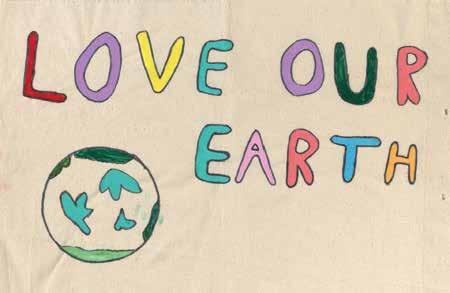 LOVE OUR
EARTH